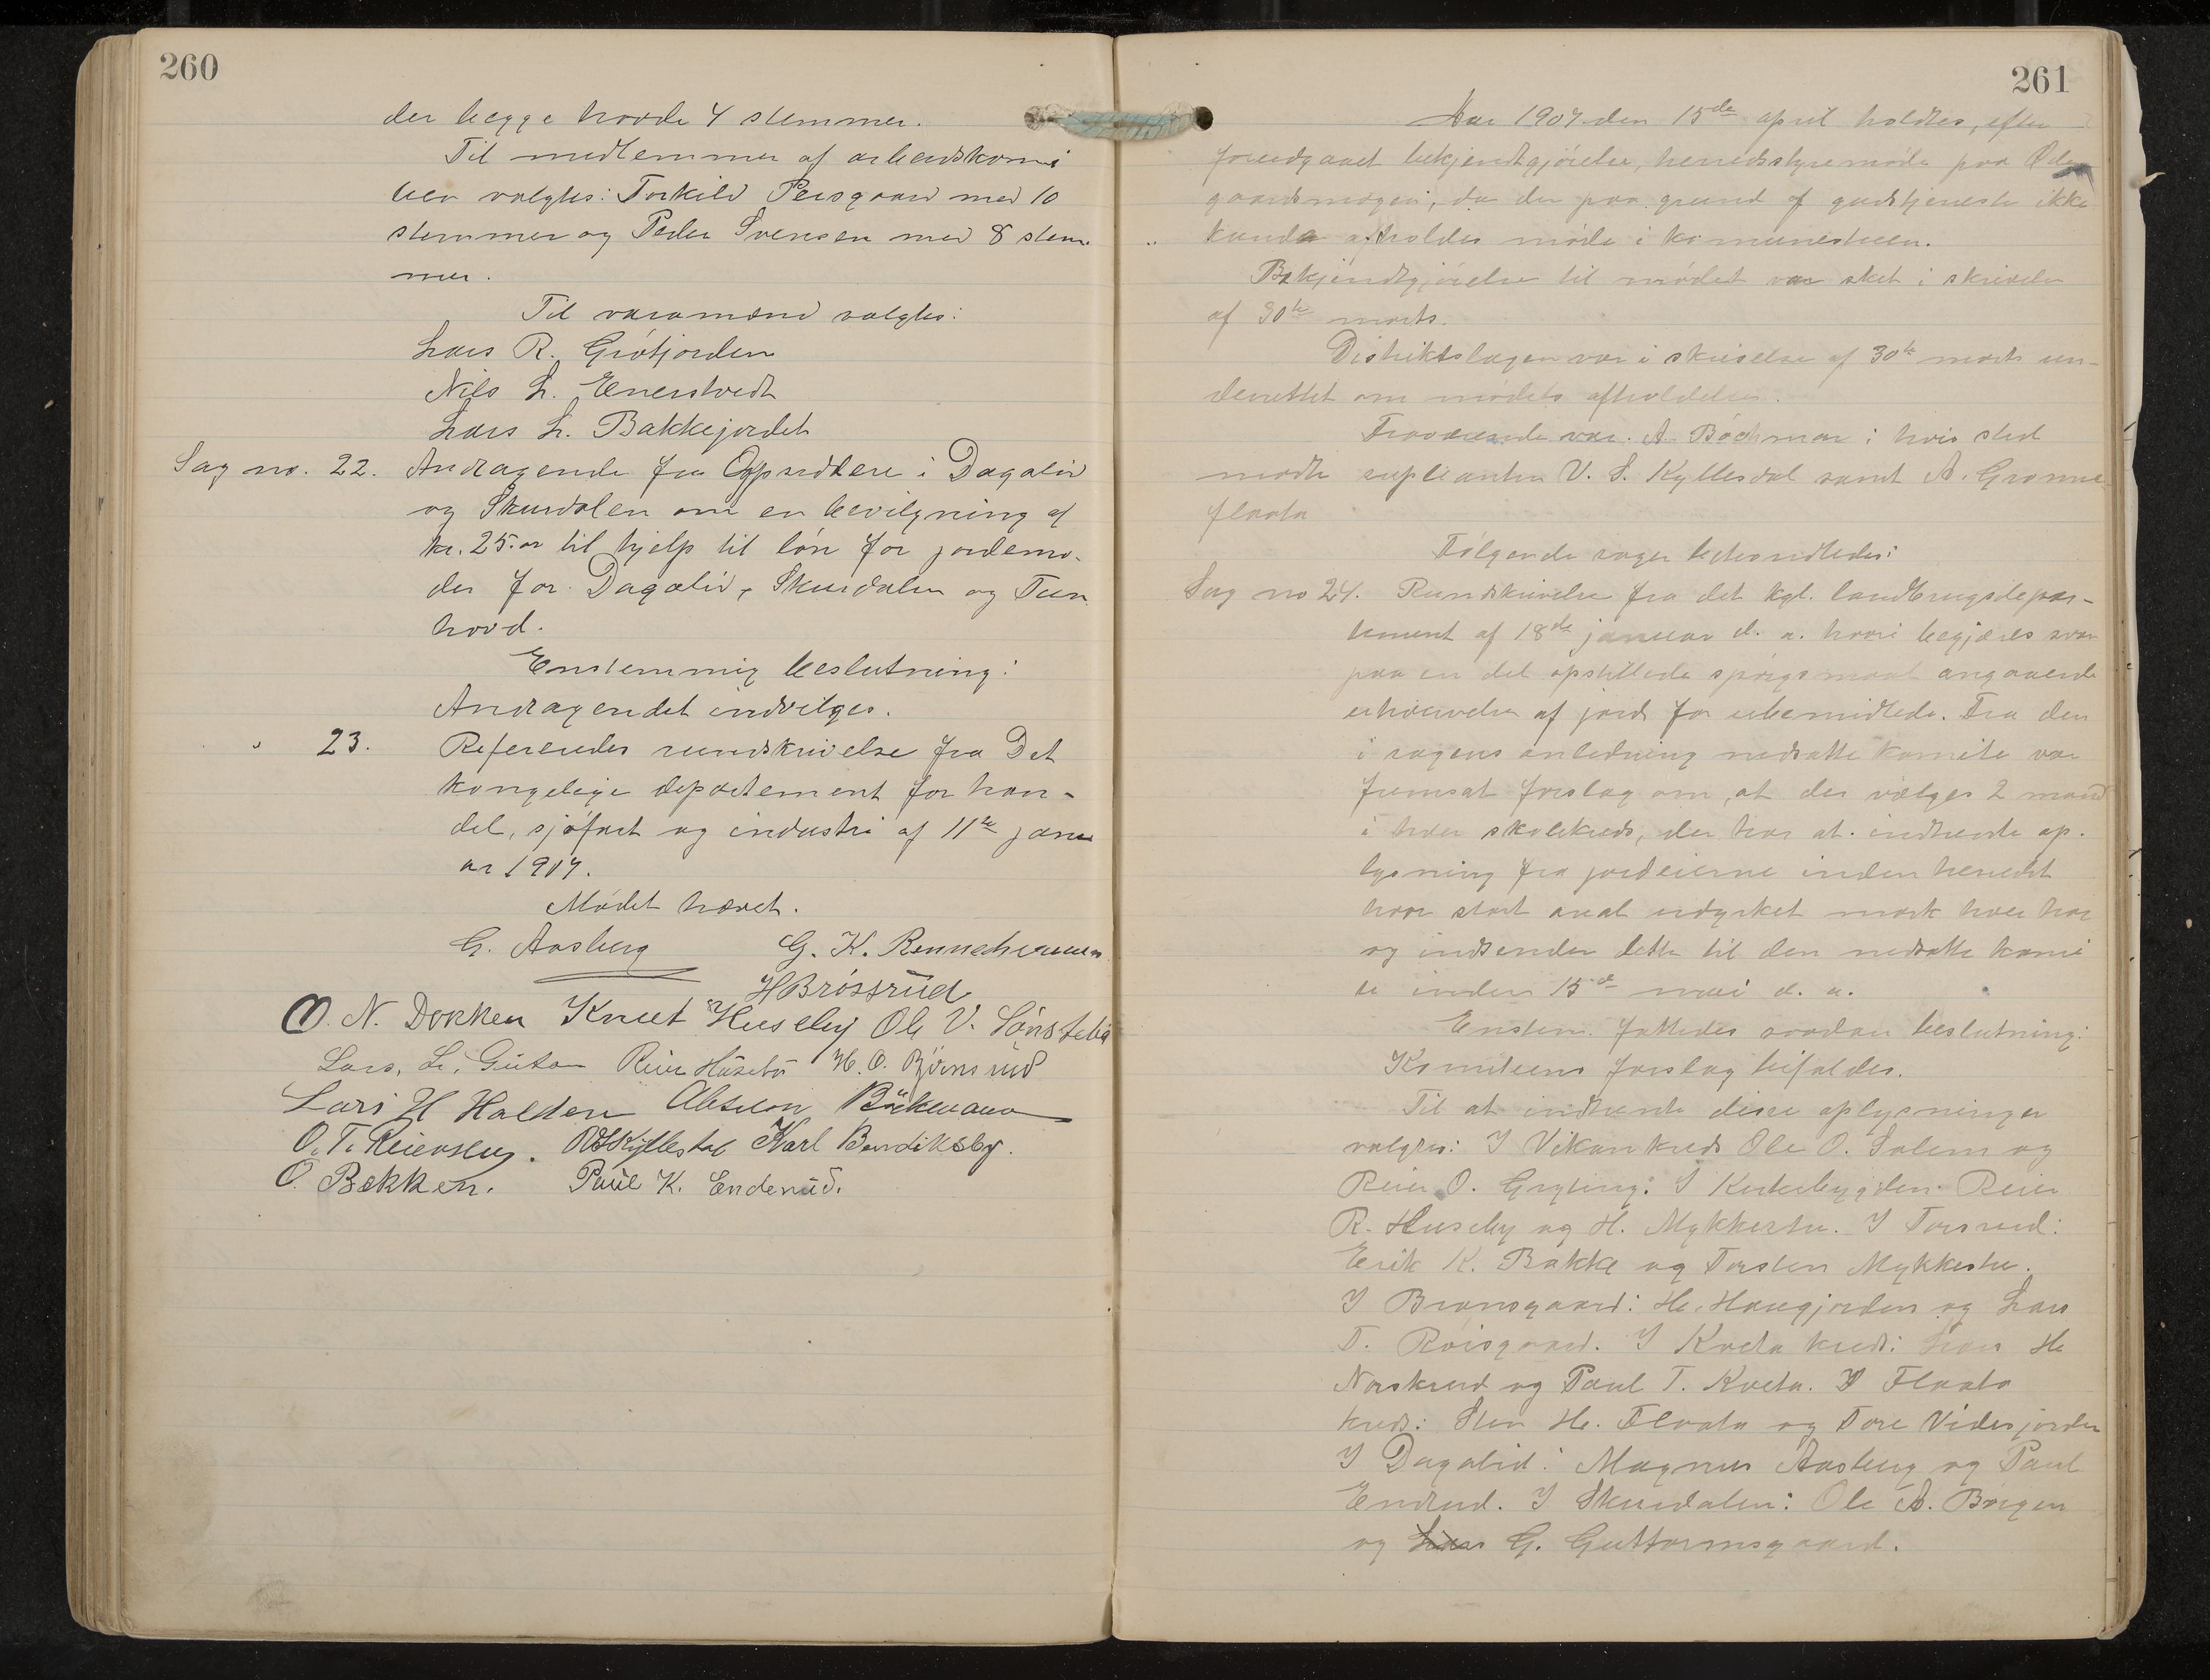 260
der begge havde 4 stemmer.
Til medlemmer af arbeidskomi
teen valgtes: Torkild Persgaard med 10
stemmer og Peder Svensen med 8 stem-
mer.
Til varamænd valgtes:
Lars R. Grøtjorden
Nils L. Enerstvedt
Lars L. Bakkejordet
Sag no. 22. Andragende fra Opsidtere i Dagalid
og Skurdalen om en bevilgning af
kr. 25.00 til hjelp til løn for jordemo-
der for Dagalid, Skurdalen og Tun
hovd.
Enstemmig beslutning:
Andragendet indvilges.
" 23. Refereredes rundskrivelse fra Det
kongelige departement for han-
del, sjøfart og industri af 11te janu
ar 1907.
Mødet hævet.
G. Aasberg G. K. Rennehvammen
H Brøstrud
O. N. Dokken Knut Huseby Ole V. Sønstebø
Lars. L. Guton Reier Husebø H. O. Bjørnsrud
Lars H Halden Abselon Bäckmann
O. T. Reiersen. O S Kyllesdal Karl Bendiksby.
O. Bekken. Paul K. Enderud.
261
Aar 1907 den 15de april holdtes, efter
forudgaaet bekjendtgjørelse, herredsstyremøde paa Øde
gaardsmogen, da der paa grund af gudstjeneste ikke
kunde afholdes møde i komunestuen.
Bekjendtgjørelse til mødet var sket i skrivelse
af 30te marts.
Distriktslægen var i skrivelse af 30te marts un-
derrettet om mødets afholdelse.
Fraværende var. A. Bächman i hvis sted
mødte supleanten V. S. Kyllesdal samt A. Gronne
flaata
Følgende sager behandledes:
Sag no 24. Rundskrivelse fra det kgl. landbrugsdepar-
tement af 18de januar d. a. hvori begjæres svar
paa en del opstillede spørgsmaal angaaende
erhvervelse af jord for ubemidlede. Fra den
i sagens anledning nedsatte komite var
fremsat forslag om, at der vælges 2 mand
i hver skolekreds, der har at indhente op-
lysning fra jordeierne inden herredet
hvor stort areal udyrket mark hver har
og indsender dette til den nedsatte komi
te inden 15de mai d. a.
Enstem. fattedes saadan beslutning:
Komiteens forslag bifaldes.
Til at indhente disse oplysninger
valgtes: I Vikan kreds Ole O. Solem og
Reier O. Gryting: I Kirkebygden: Reier
R. Huseby og H. Mykkestu. I Torsrud:
Erik K. Bakke og Torsten Mykkestu.
I Brønsgaard: H. Haugjorden og Lars
T. Roisgaard. I Kvelu kreds: Lars H
Norskrud og Paul T. Kvelu. I Flaata
kreds: Sten H. Flaata og Tore Videsjorden
I Dagalid: Magnus Aasberg og Paul
Endrud. I Skurdalen: Ole A. Børgen
og G. Guttormsgaard.